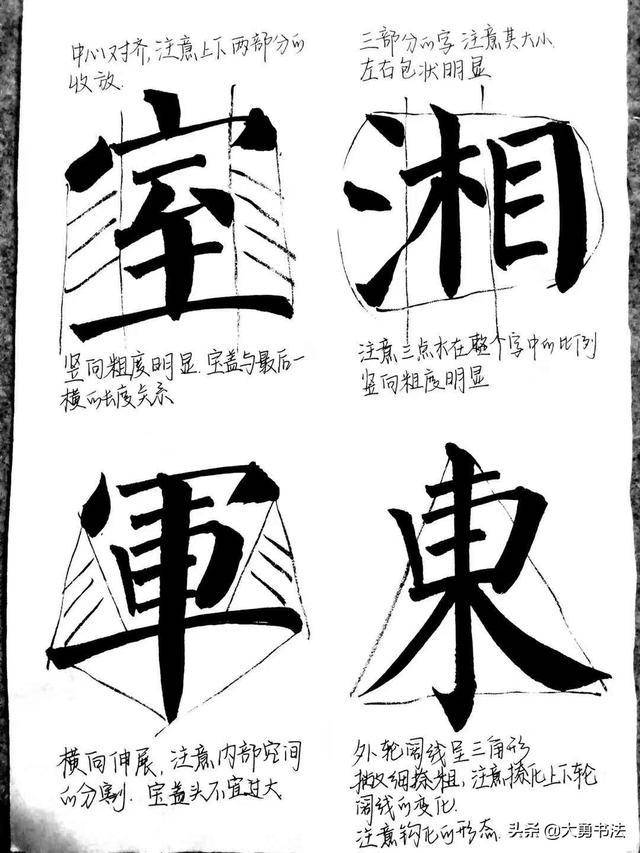 中心对齐,注意上下两部分的
收放.
室
竖向粗度明显.宝盖与最后一
横的长度关系
三部分的字 注意其大小.
左右包状明显
湘
注意三点水在整个字中的比例
竖向粗度明显
軍
横向伸展,注意内部空间
的分割.宝盖头不宜过大
東
外轮阔线呈三角形
撇细捺粗,注意捺化上下轮
阔线的变化.
注意钩化的形态.
头条@大勇书法